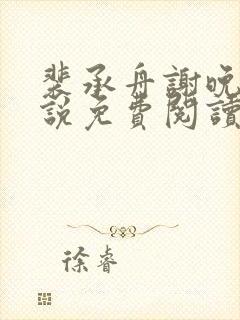 裴承舟謝晚
說免費閱讀
徐睿